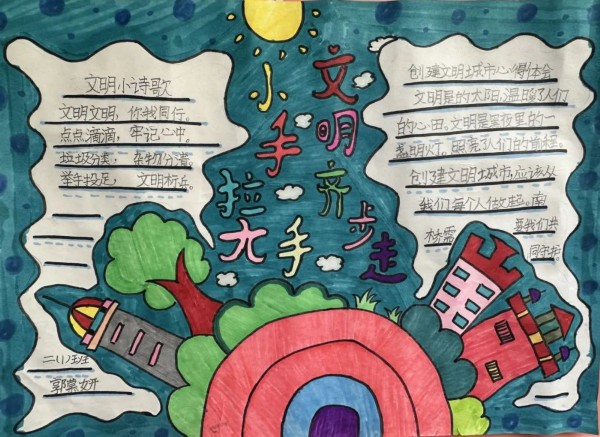 文明小诗歌
文明文明，你我同行。
点点滴滴，牢记心中。
垃圾分类，杂物分袋。
举手投足，文明标兵。
二(1)班
小手拉大手
文明齐步走
创建文明城市心得体会
文明是的太阳，温暖了人们
的心田。文明是黑夜里的一
盏明灯，照亮了人们的
创建文明城市，应该从
我们每个人做起。南
桥需要我们共
同守护